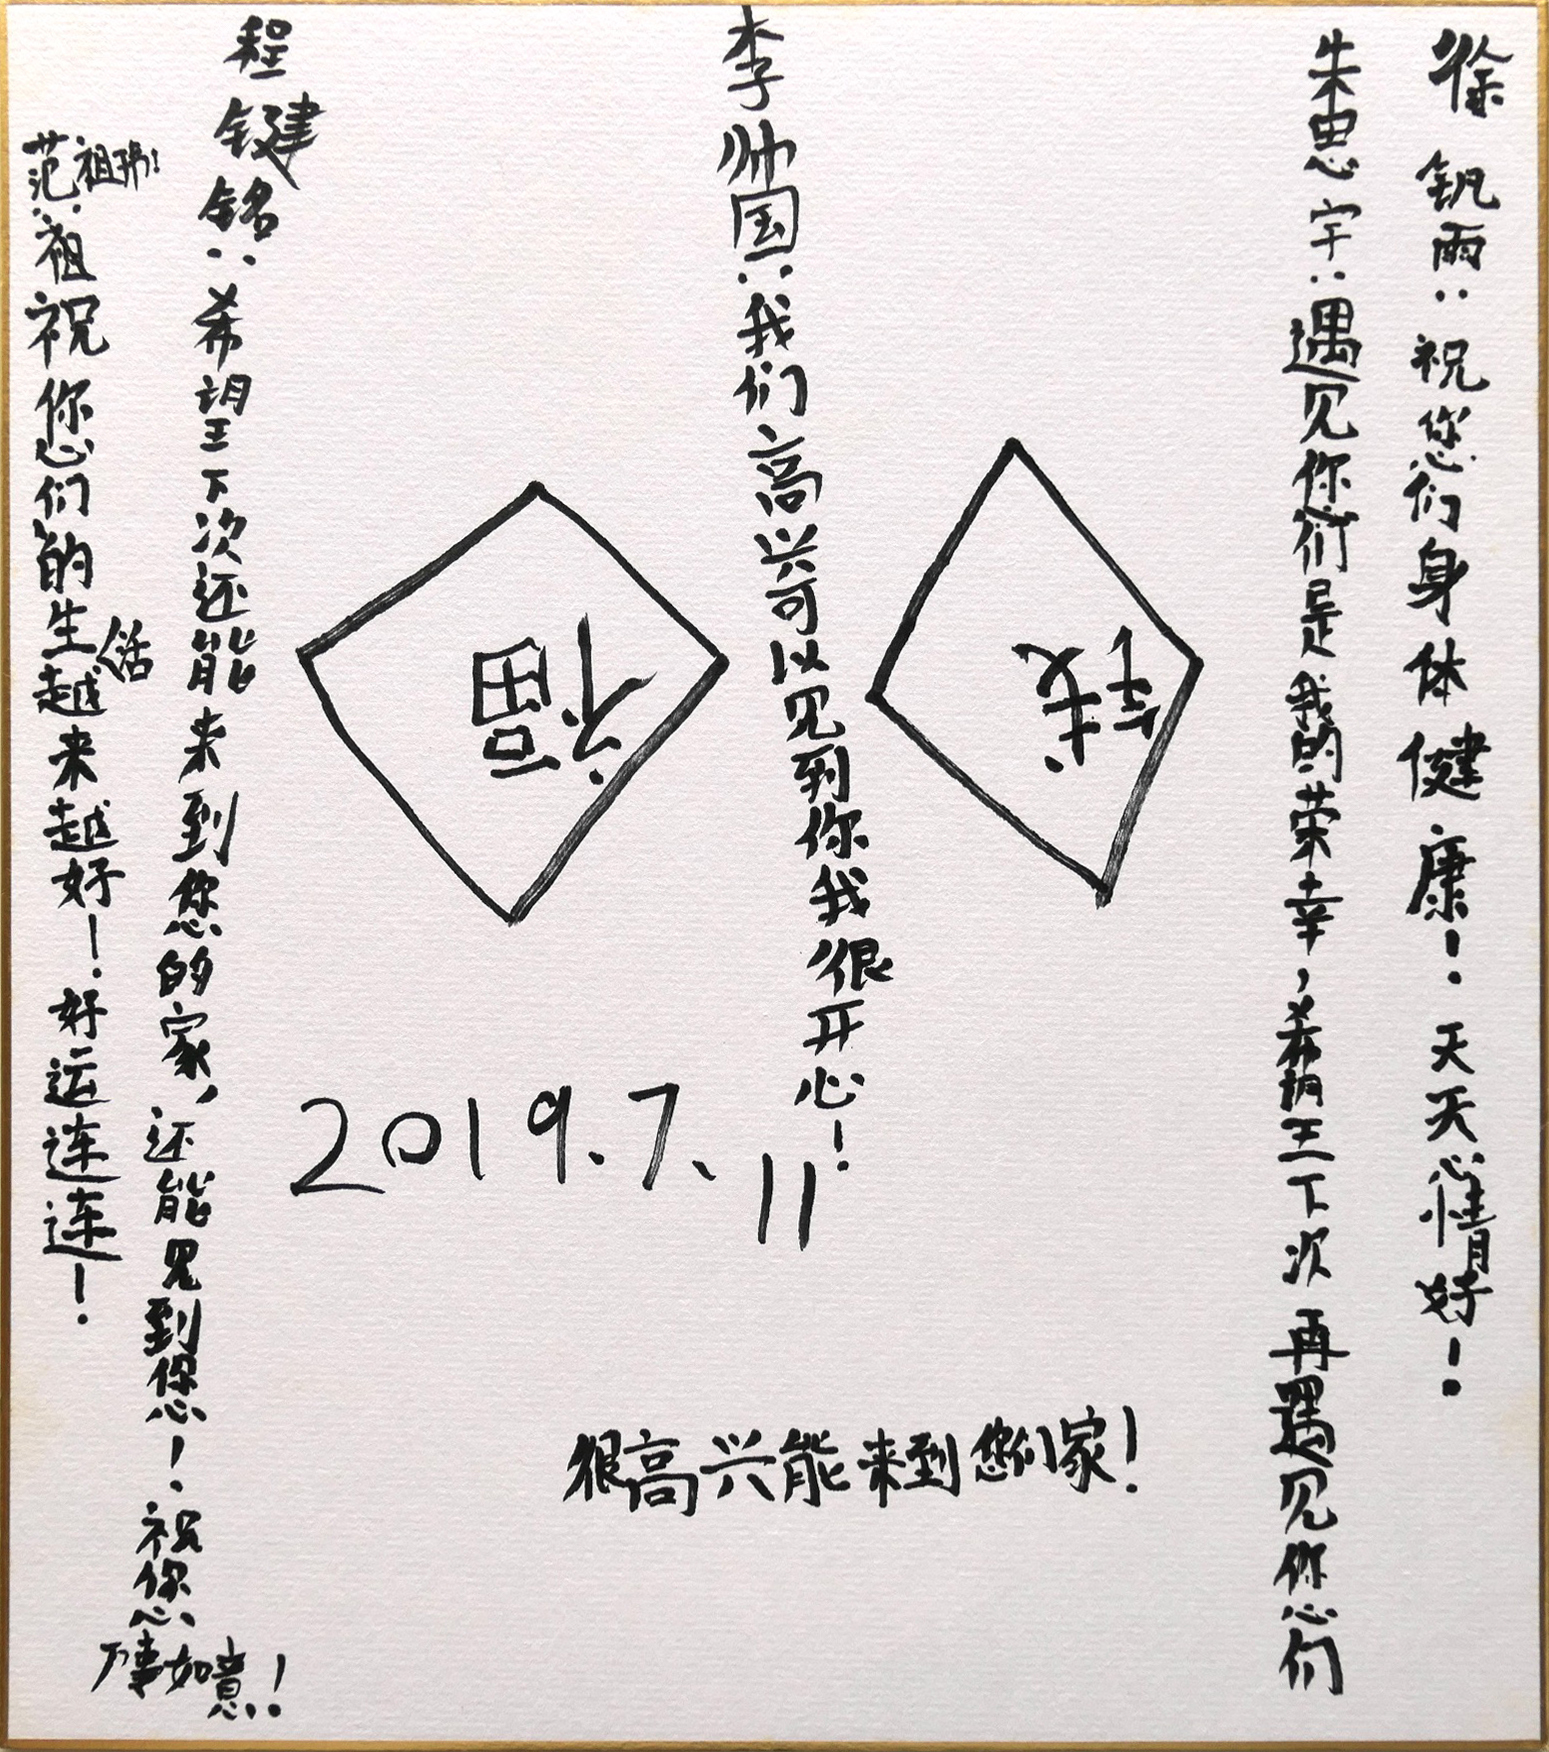 徐钒雨：祝您们身体健康！天天心情好！
朱思宇：遇见你们是我的荣幸，希望下次再遇见您们
李帅国：我们高兴可以见到你我很开心！
程键铭：希望下次还能来到您的家，还能见到您！祝您万事如意！
范祖玮！
范：祖祝您们的生活越来越好！好运连连！
福
钱
2019.7.11
很高兴能来到您们家！